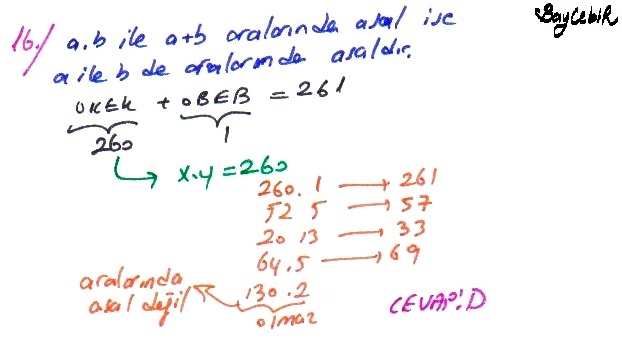 BayCebiR
16. / a.b ile a+b aralarında asal ise
a ile b de aralarında asaldır.
OKEK + OBEB = 261
260 1
x.y = 260
260. 1 → 261
52 5 → 57
20 13 → 33
64.5 → 69
130.2
aralarında
asal değil
olmaz
CEVAP: D